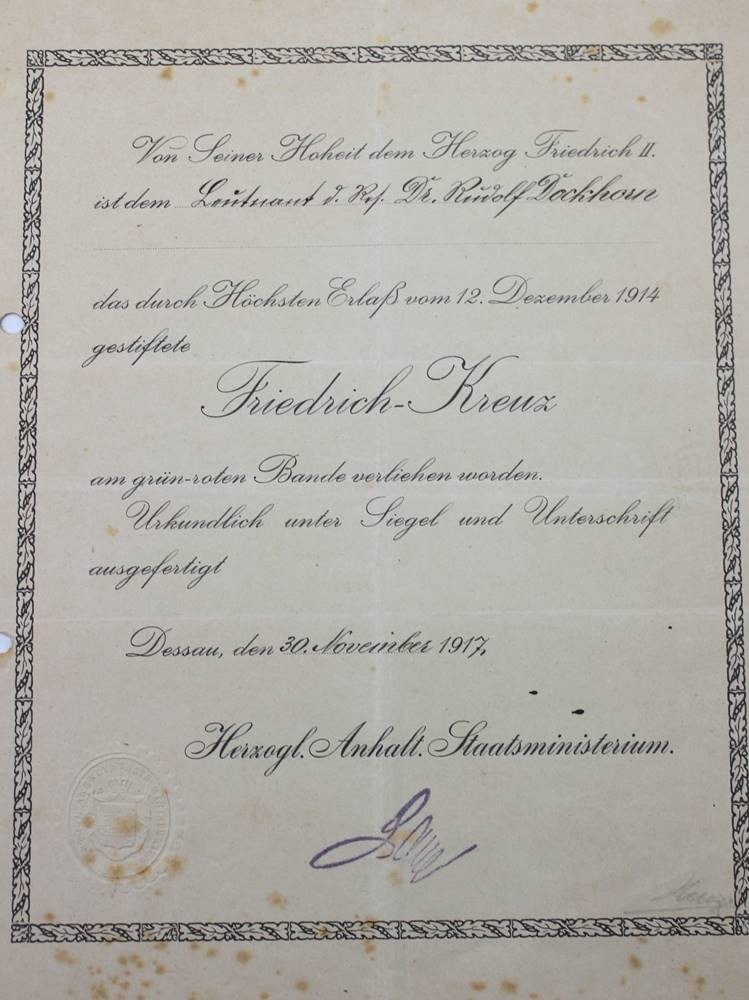 Von Seiner Hoheit dem Herzog Friedrich II.
ist dem Leutnant d. Res. Dr. Rudolf Dockhorn
das durch Höchsten Erlaß vom 12. Dezember 1914
gestiftete
Friedrich-Kreuz
am grün-roten Bande verliehen worden.
Urkundlich unter Siegel und Unterschrift
ausgefertigt
Dessau, den 30. November 1917.
Herzogl. Anhalt. Staatsministerium.